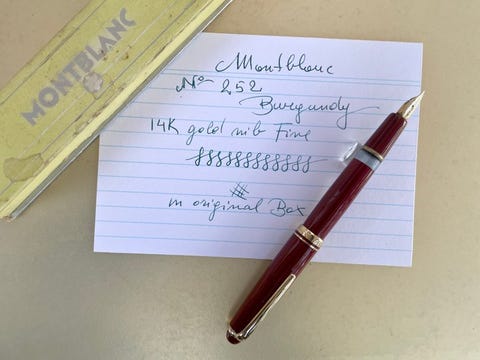 MONTBLANC
Montblanc
No 252
Burgundy
14K gold nib Fine
in original Box